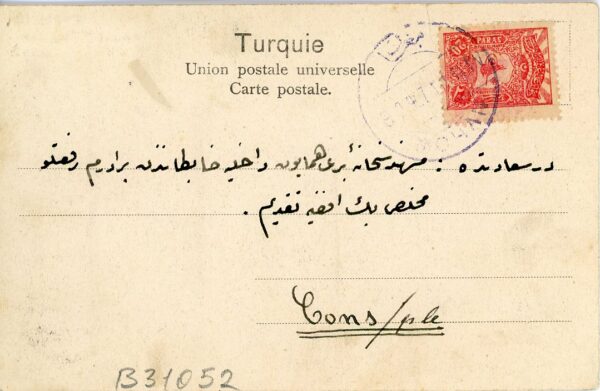 Turquie
Union postale universelle
Carte postale.
20 PARAS 20
در سعادتده : مهندسخانهٔ برئ همایون داخلیه ضابطاندن برادرم رفعتلو
مخلص بك افندیه تقدیم .
Cons/ple
B31052